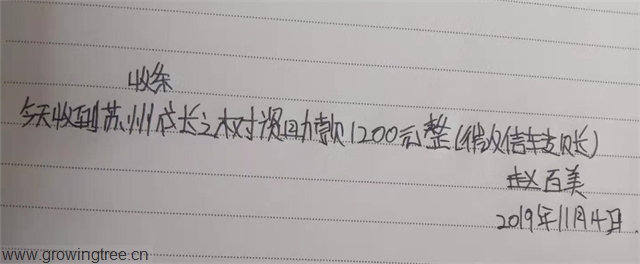 收条
今天收到苏州成长之树资助款1200元整(微信转账)
赵百美
2019年11月4日.
www.growingtree.cn